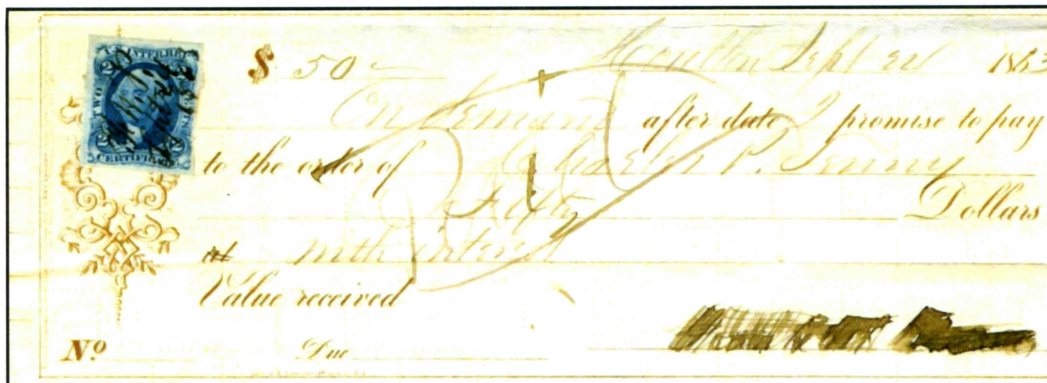 $ 50 Sept 24 1863
On demand after date I promise to pay
to the order of Charles P. Tenny
Fifty Dollars
at with interest
Value received
No Due
U.S. INTER. REV.
TWO CENTS
CERTIFICATE